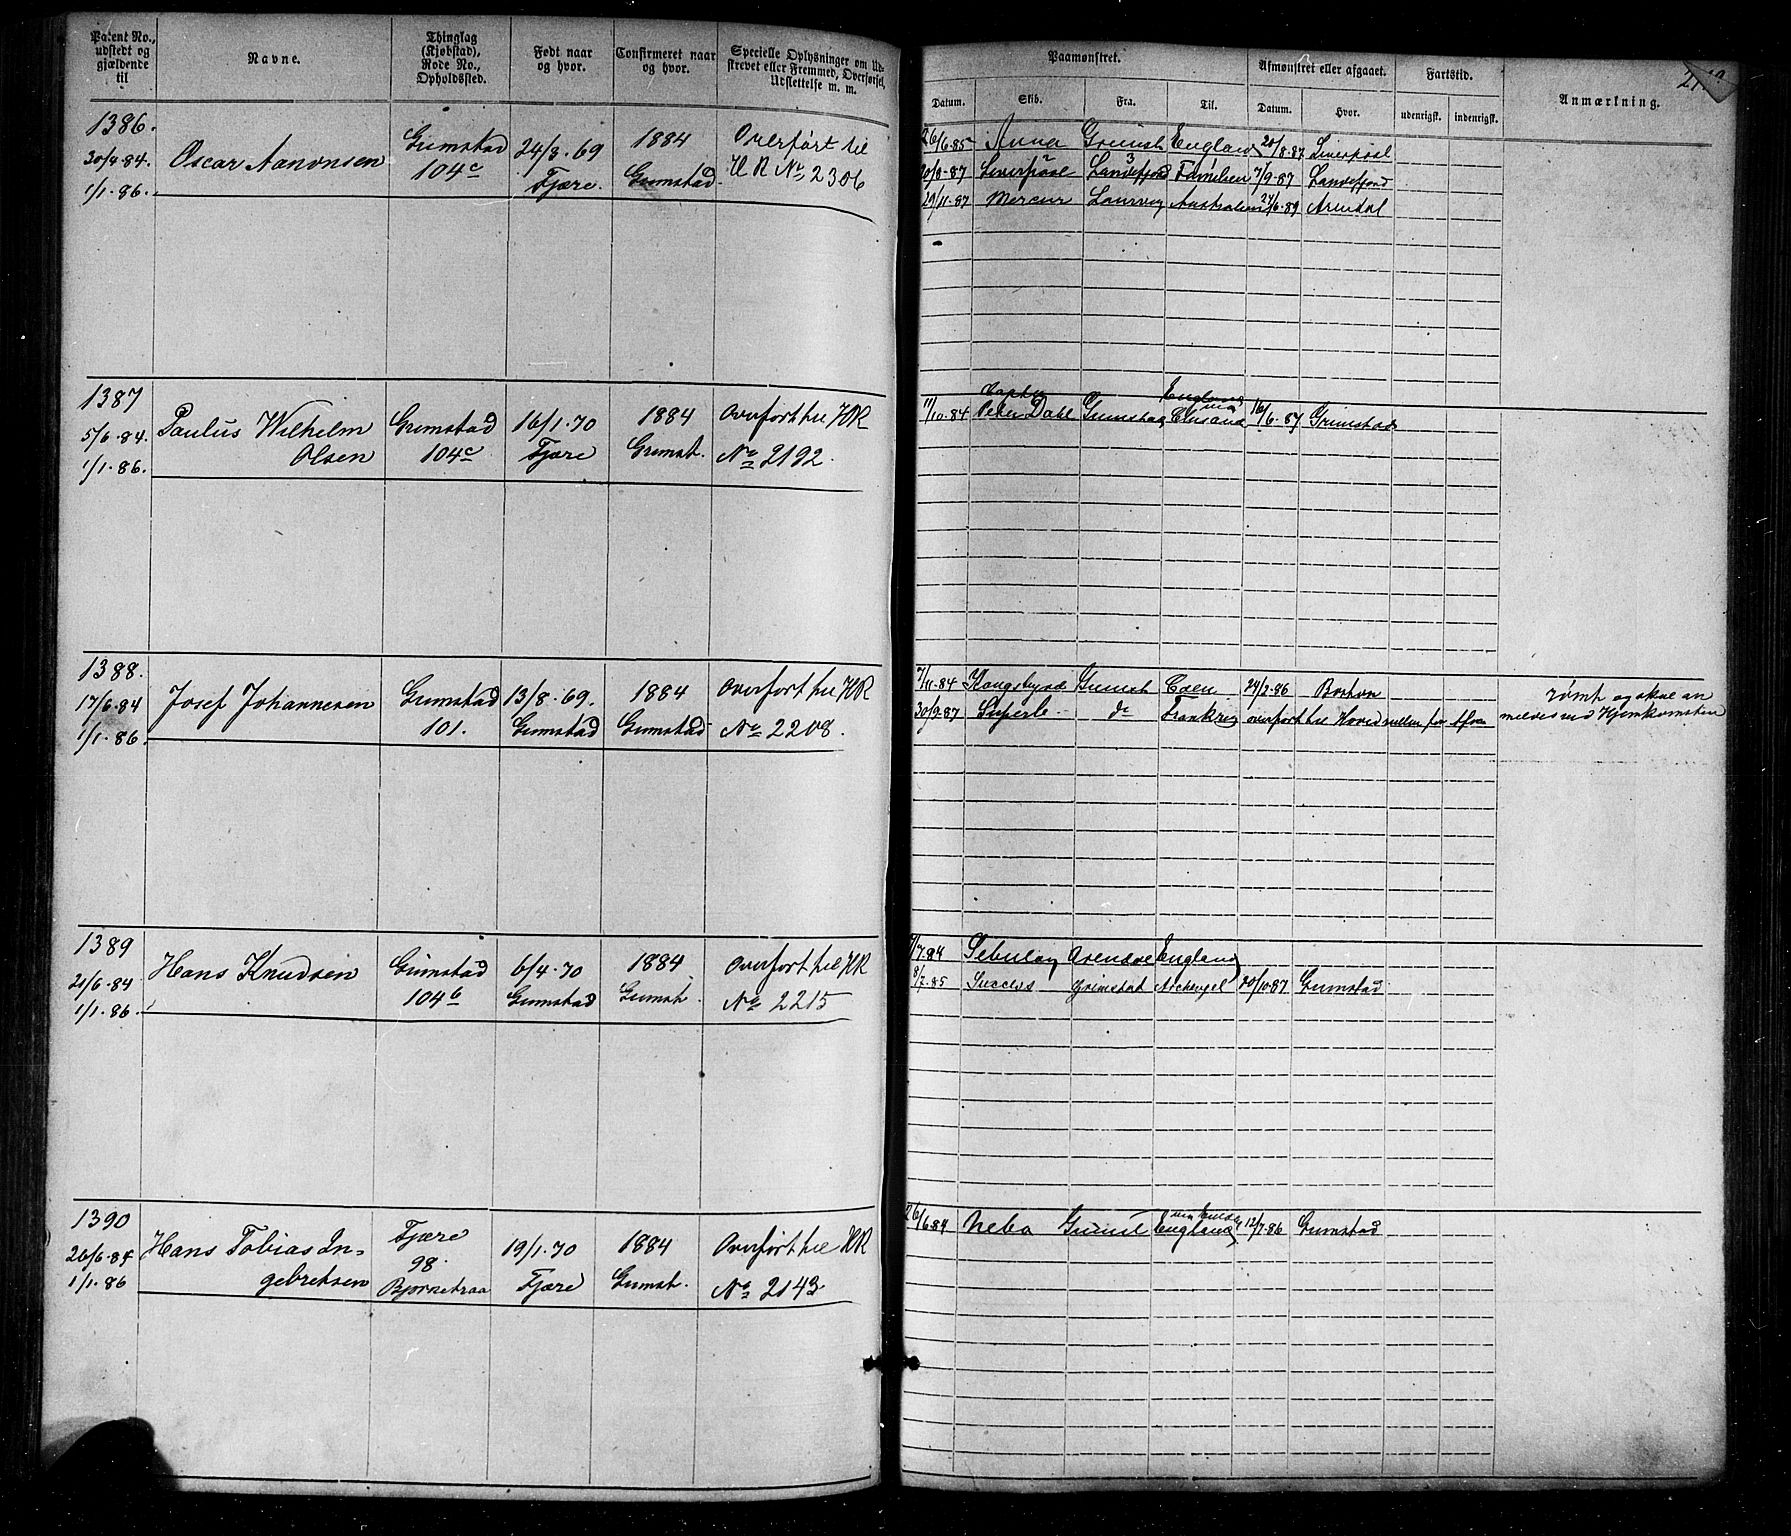 Patent No., udstedt og gjældende til
Navne.
Thinglag (Kjøbstad), Rode No., Opholdssted.
Født naar og hvor.
Confirmeret naar og hvor.
Specielle Oplysninger om Udskrevet eller Fremmed, Overførsel, Udslettelse m. m.
Paamønstret.
Afmønstret eller afgaaet.
Fartstid.
Anmærkning.
Datum.
Skib.
Fra.
Til.
Datum.
Hvor.
udenrigsk.
indenrigsk.
1386.
30/4·84.
1/1·86.
Oscar Aanonsen
Grimstad
104c
24/8·69
Fjære
1884
Grimstad
Overført til
HR No 2306
26/6·85 Anna Grimst England 20/8·87 Liverpool
20/8·87 Liverpool Sandefjord Familien 7/9·87 Sandefjord
29/11·87 Mercur Laurvig Australien 24/6·89 Arendal
1387
5/6·84.
1/1·86.
Paulus Wilhelm
Olsen
Grimstad
104c
16/1·70
Fjære
1884
Grimst.
Overført til HR
No 2192.
England
11/10·84 Peter Dahl Grimstad 16/6·87 Grimstad
1388.
17/6·84
1/1·86.
Josef Johannesen
Grimstad
101.
13/8·69.
Grimstad
1884
Grimstad
Overført til HR
No 2208.
7/11·84 Grimst 24/2·86
30/9·87 Superb do Frankrig overført til Hovedrullen
rømt og skal an
meldes ved Hjemkomsten
1389
21/6·84
1/1·86.
Hans Knudsen
Grimstad
104b
6/4·70
Grimstad
1884
Grimst.
Overført til HR
No 2215
7/7·84 Sebulon Arendal England
8/2·85 Success Grimstad Archangel 20/10·87 Grimstad
1390
26/6·84
1/1·86
Hans Tobias In=
gebretsen
Fjære
98.
Bjørnetraa
19/1·70
Fjære
1884
Grimst.
Overført til HR
No 2143
26/6·84 Neba Grimst England 12/7·86 Grimstad